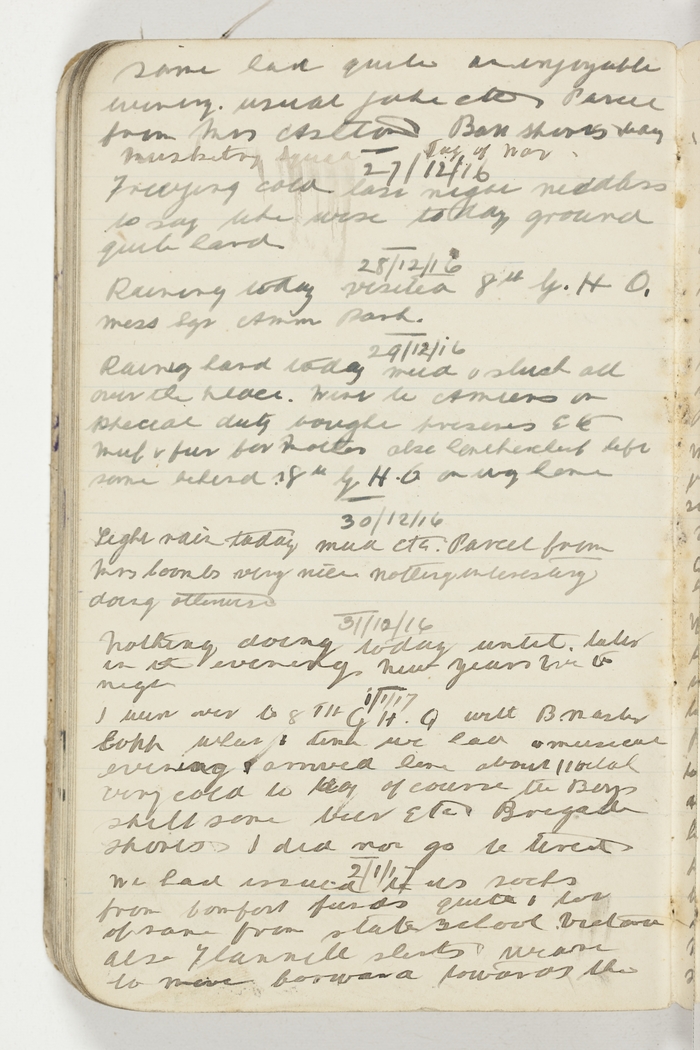 some had quite an enjoyable
evening. usual joke etc Parcel
from Mrs Asltond Ban shorts day
Musketry squad Day of Nov
27/12/16
Freezing cold last night needless
to say like wise to day ground
quite hard
28/12/16
Raining today visited 8th G. H Q.
mess Sgt Amm Park.
29/12/16
Raing hard today mud & slush all
over the place. Went to Amiens on
special duty bought presents Etc
muf & fur for Mother also left
some behind 8th G. H. Q on way home
30/12/16
Light rain today mud etc. Parcel from
Mrs Coombs very nice nothing interesting
doing otherwise
31/12/16
Nothing doing today until. later
in the evening New Years Eve to
night
1/1/17
I went over to 8TH G H. Q with B master
what a time we had a musical
evening & arrived home about 11 oclock
very cold to day of course the Boys
still some beer Etc Brigade
shorts I did not go to tired
2/1/17
We had issued to us socks
from Comfort funds quite a lot
of same from state school Victoria
also Flannell shirts we are
to move forward towards the